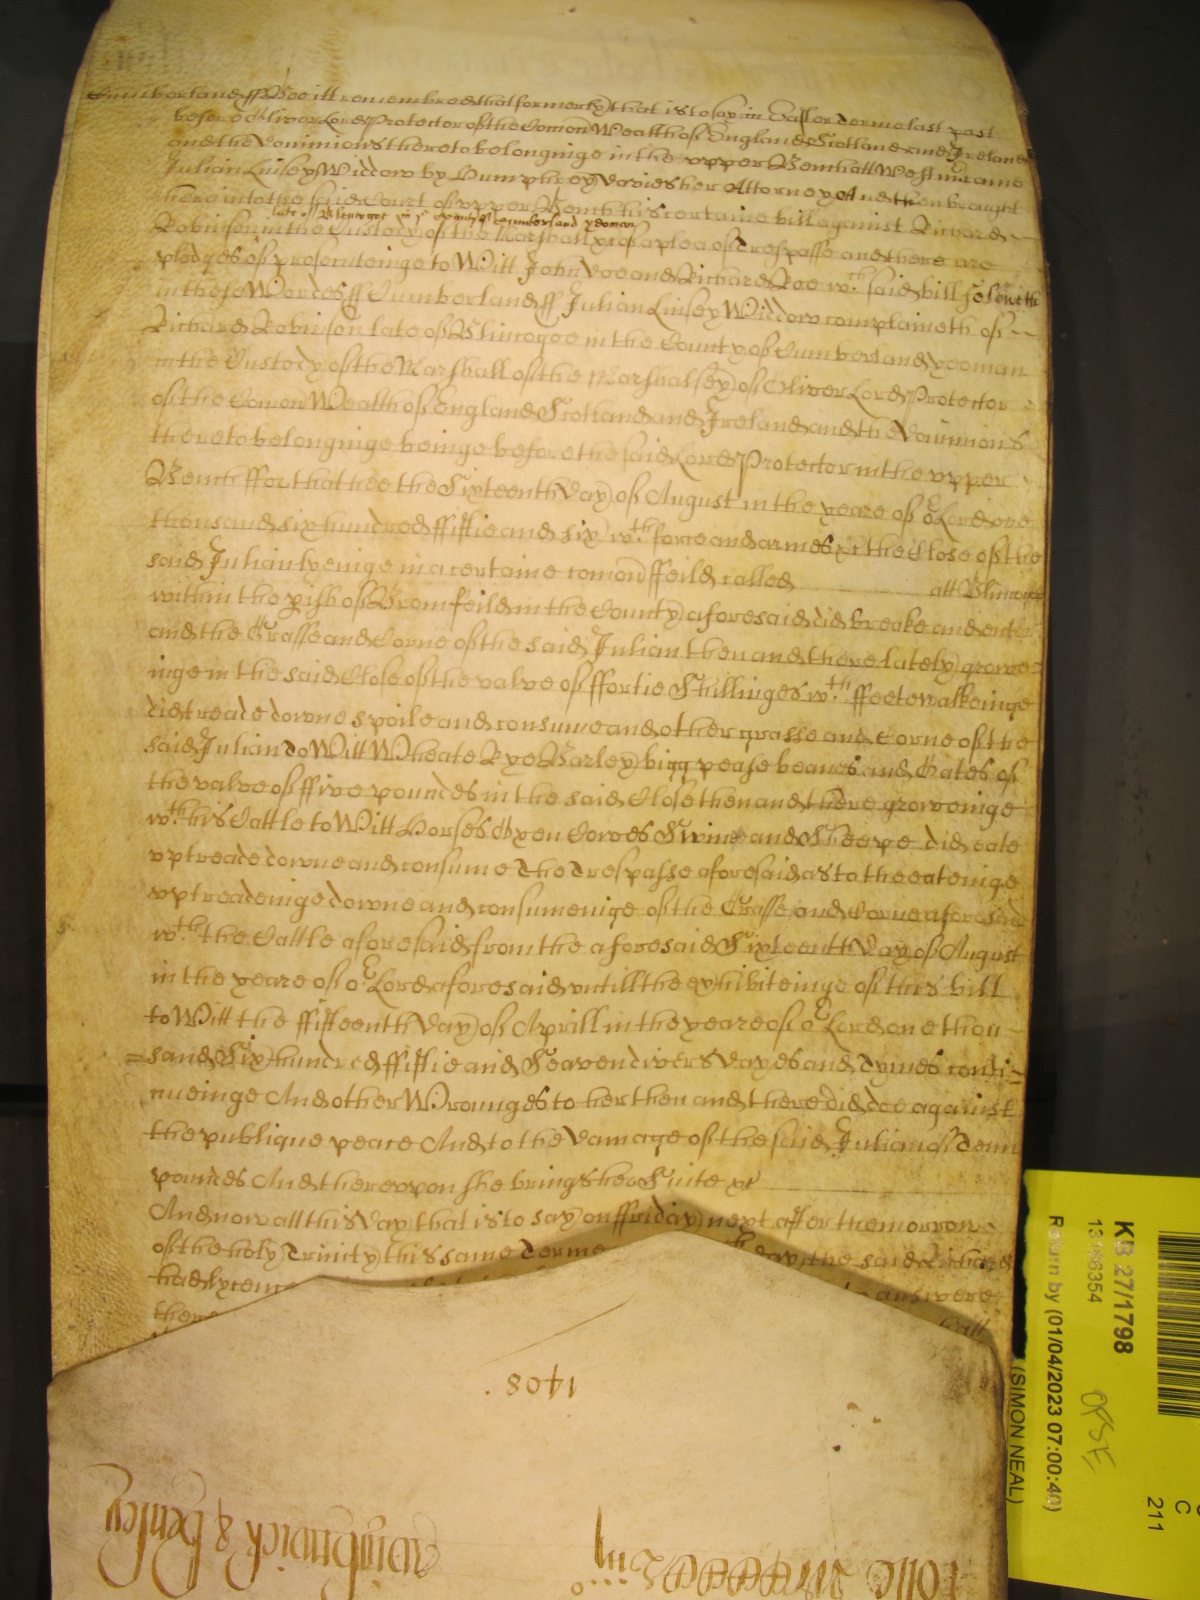 Cumberland ss Bee itt remembred that formerly that is to say in Easter Terme last past
before Oliver Lord Protector of the Comon Wealth of England Scotland and Ireland
and the Dominions thereto belonginge in the upper Bench att Westm came
Julian Linsey Widdow by Humphrey Davies her Attorney And then brought
here into the said Court of upper Bench his certaine bill against Richard
late of Blencogoe in ye County of Cumberland yeoman
Robinson in the Custody of the Marshall &c of a plea of Trespasse and there are
pledges of prosecuteinge to Witt John Doe and Richard Roe wch. said bill followeth
in these Wordes ss Cumberland ss Julian Linsey Widdow complaineth of
Richard Robinson late of Blincogoe in the County of Cumberland yeoman
in the Custody of the Marshall of the Marshalsey of Oliver Lord Protector
of the Comon Wealth of England Scotland and Ireland and the Dominions
thereto belonginge beinge before the said Lord Protector in the upper
Bench ffor that hee the Sixteenth Day of August in the yeare of or Lord one
thousand six hundred ffiftie and six wth. force and armes &c the Close of the
said Julian lyeinge in a certaine comon ffeild called att Blincogoe
within the pish of Bromfeild in the County aforesaid did breake and enter
and the Grasse and Corne of the said Julian then and there lately growe=
inge in the said Close of the value of ffortie Shillinges wth. ffeete walkeinge
did treade downe spoile and consume and other grasse and Corne of the
said Julian to Witt Wheate Rye Barley bigg pease beanes and Oates of
the value of ffive poundes in the said Close then and there groweinge
wth. his Cattle to Witt Horses Oxen Cowes Swine and Sheepe did eate
up treade downe and consume The Trespasse aforesaid as to the eateinge
up treadeinge downe and consumeinge of the Grasse and Corne aforesaid
wth. the Cattle aforesaid from the aforesaid Sixteenth Day of August
in the yeare of or Lord aforesaid untill the exhibiteinge of this bill
to Witt the ffifteenth Day of Aprill in the yeare of or Lord one thou-
=sand Six hundred ffiftie and Seaven divers Dayes and Tymes conti=
nueinge And other Wrounges to her then and there did doe against
the publique peace And to the Damage of the said Julian of Tenn
poundes And thereuppon she brings her Suite &c
And now att this Day that is to say on ffriday next after the morrow
of the holy Trinity this same Terme day the said Richard
had lycence to answere
there
1408.
Wightwick & Henley
KB 27/1798
13186354
Return by (01/04/2023 07:00:40)
(SIMON NEAL)
C
211